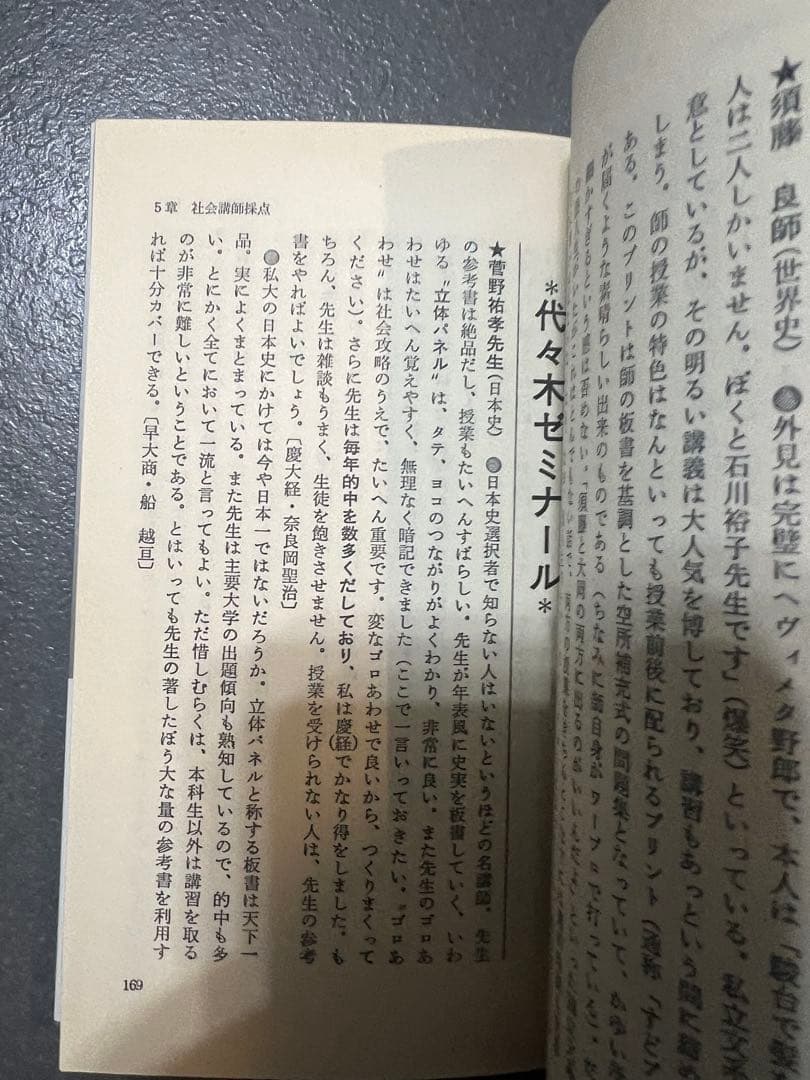 ★須藤　良師(世界史)　●外見は完璧にヘヴィメタ野郎で、本人は「駿台で
人は二人しかいません。ぼくと石川裕子先生です」(爆笑)といっている。私立文系
意としているが、その明るい講義は大人気を博しており、講習もあっという間に締め
しまう。師の授業の特色はなんといっても授業前後に配られるプリント(通称
ある。このプリントは師の板書を基調とした空所補充式の問題集となっていて、かゆい
が届くような素晴らしい出来のものである(ちなみに師自身がワープロで打っている)。
細かすぎるという感は否めない。「須藤と大岡の両方に出るのが
＊代々木ゼミナール＊
★菅野祐孝先生(日本史)　●日本史選択者で知らない人はいないというほどの名講師。先生
の参考書は絶品だし、授業もたいへんすばらしい。先生が年表風に史実を板書していく、いわ
ゆる〝立体パネル〟は、タテ、ヨコのつながりがよくわかり、非常に良い。また先生のゴロあ
わせはたいへん覚えやすく、無理なく暗記できました(ここで一言いっておきたい。〝ゴロあ
わせ〟は社会攻略のうえで、たいへん重要です。変なゴロあわせで良いから、つくりまくって
ください)。さらに先生は毎年的中を数多くだしており、私は慶(経)でかなり得をしました。も
ちろん、先生は雑談もうまく、生徒を飽きさせません。授業を受けられない人は、先生の参考
書をやればよいでしょう。〔慶大経・奈良岡聖治〕
●私大の日本史にかけては今や日本一ではないだろうか。立体パネルと称する板書は天下一
品。実によくまとまっている。また先生は主要大学の出題傾向も熟知しているので、的中も多
い。とにかく全てにおいて一流と言ってもよい。ただ惜しむらくは、本科生以外は講習を取る
のが非常に難しいということである。とはいっても先生の著したぼう大な量の参考書を利用す
れば十分カバーできる。〔早大商・船　越亘〕
5章　社会講師採点
169